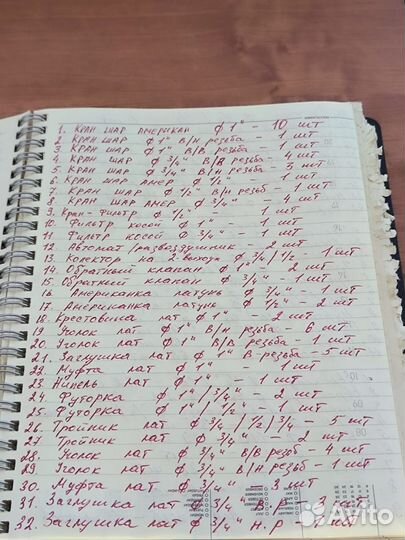 1. Кран шар американ ф 1" - 10 шт
2 Кран шар ф 1" в/н резьба - 1 шт
3 Кран шар ф 1" в/в резьба - 1 шт
4 Кран шар ф 3/4" в/в резьб - 4 шт
5 Кран шар ф 3/4" в/н резьб - 5 шт
6 Кран шар амер ф 1/2 - 1 шт
7. Кран шар ф 1/2" в/н резьб - 1 шт
8. Кран шар амер ф 3/4" - 4 шт
9. Кран-фильтр ф 1/2" - 1 шт
10. Фильтр косой ф 1" - 1 шт
11. Фильтр косой ф 3/4" - 1 шт
12. Автомат/развоздушник - 2 шт
13. Колектор на 2-выхода ф 3/4/1/2 - 1 шт
14. Обратный клапан ф 1" - 2 шт
15. Обратный клапан ф 3/4" - 1 шт
16 Американка латунь ф 3/4" - 1 шт
17 Американка латунь ф 1/2" - 2 шт
18. Крестовина лат ф 1" - 2 шт
19 Уголок лат ф 1" в/н резьба - 6 шт
20 Уголок лат ф 1" в/в резьба - 1 шт
21. Заглушка лат ф 1" в-резьба - 5 шт
22. Муфта лат ф 1" - 1 шт
23 Нипель лат ф 1" - 1 шт
24. Футорка ф 1"/3/4" - 2 шт
25. Футорка ф 1"/1/2" - 1 шт
26. Тройник лат ф 3/4/1/3/4 - 5 шт
27 Тройник лат ф 3/4" - 2 шт
28. Уголок лат ф 3/4" в/в резьб - 4 шт
29. Уголок лат ф 3/4" в/н резьб - 1 шт
30. Муфта лат ф 3/4" - 3 шт
31. Заглушка лат ф 3/4 в.р - 3 шт
32. Заглушка лат ф 3/4" н.р - шт
Avito